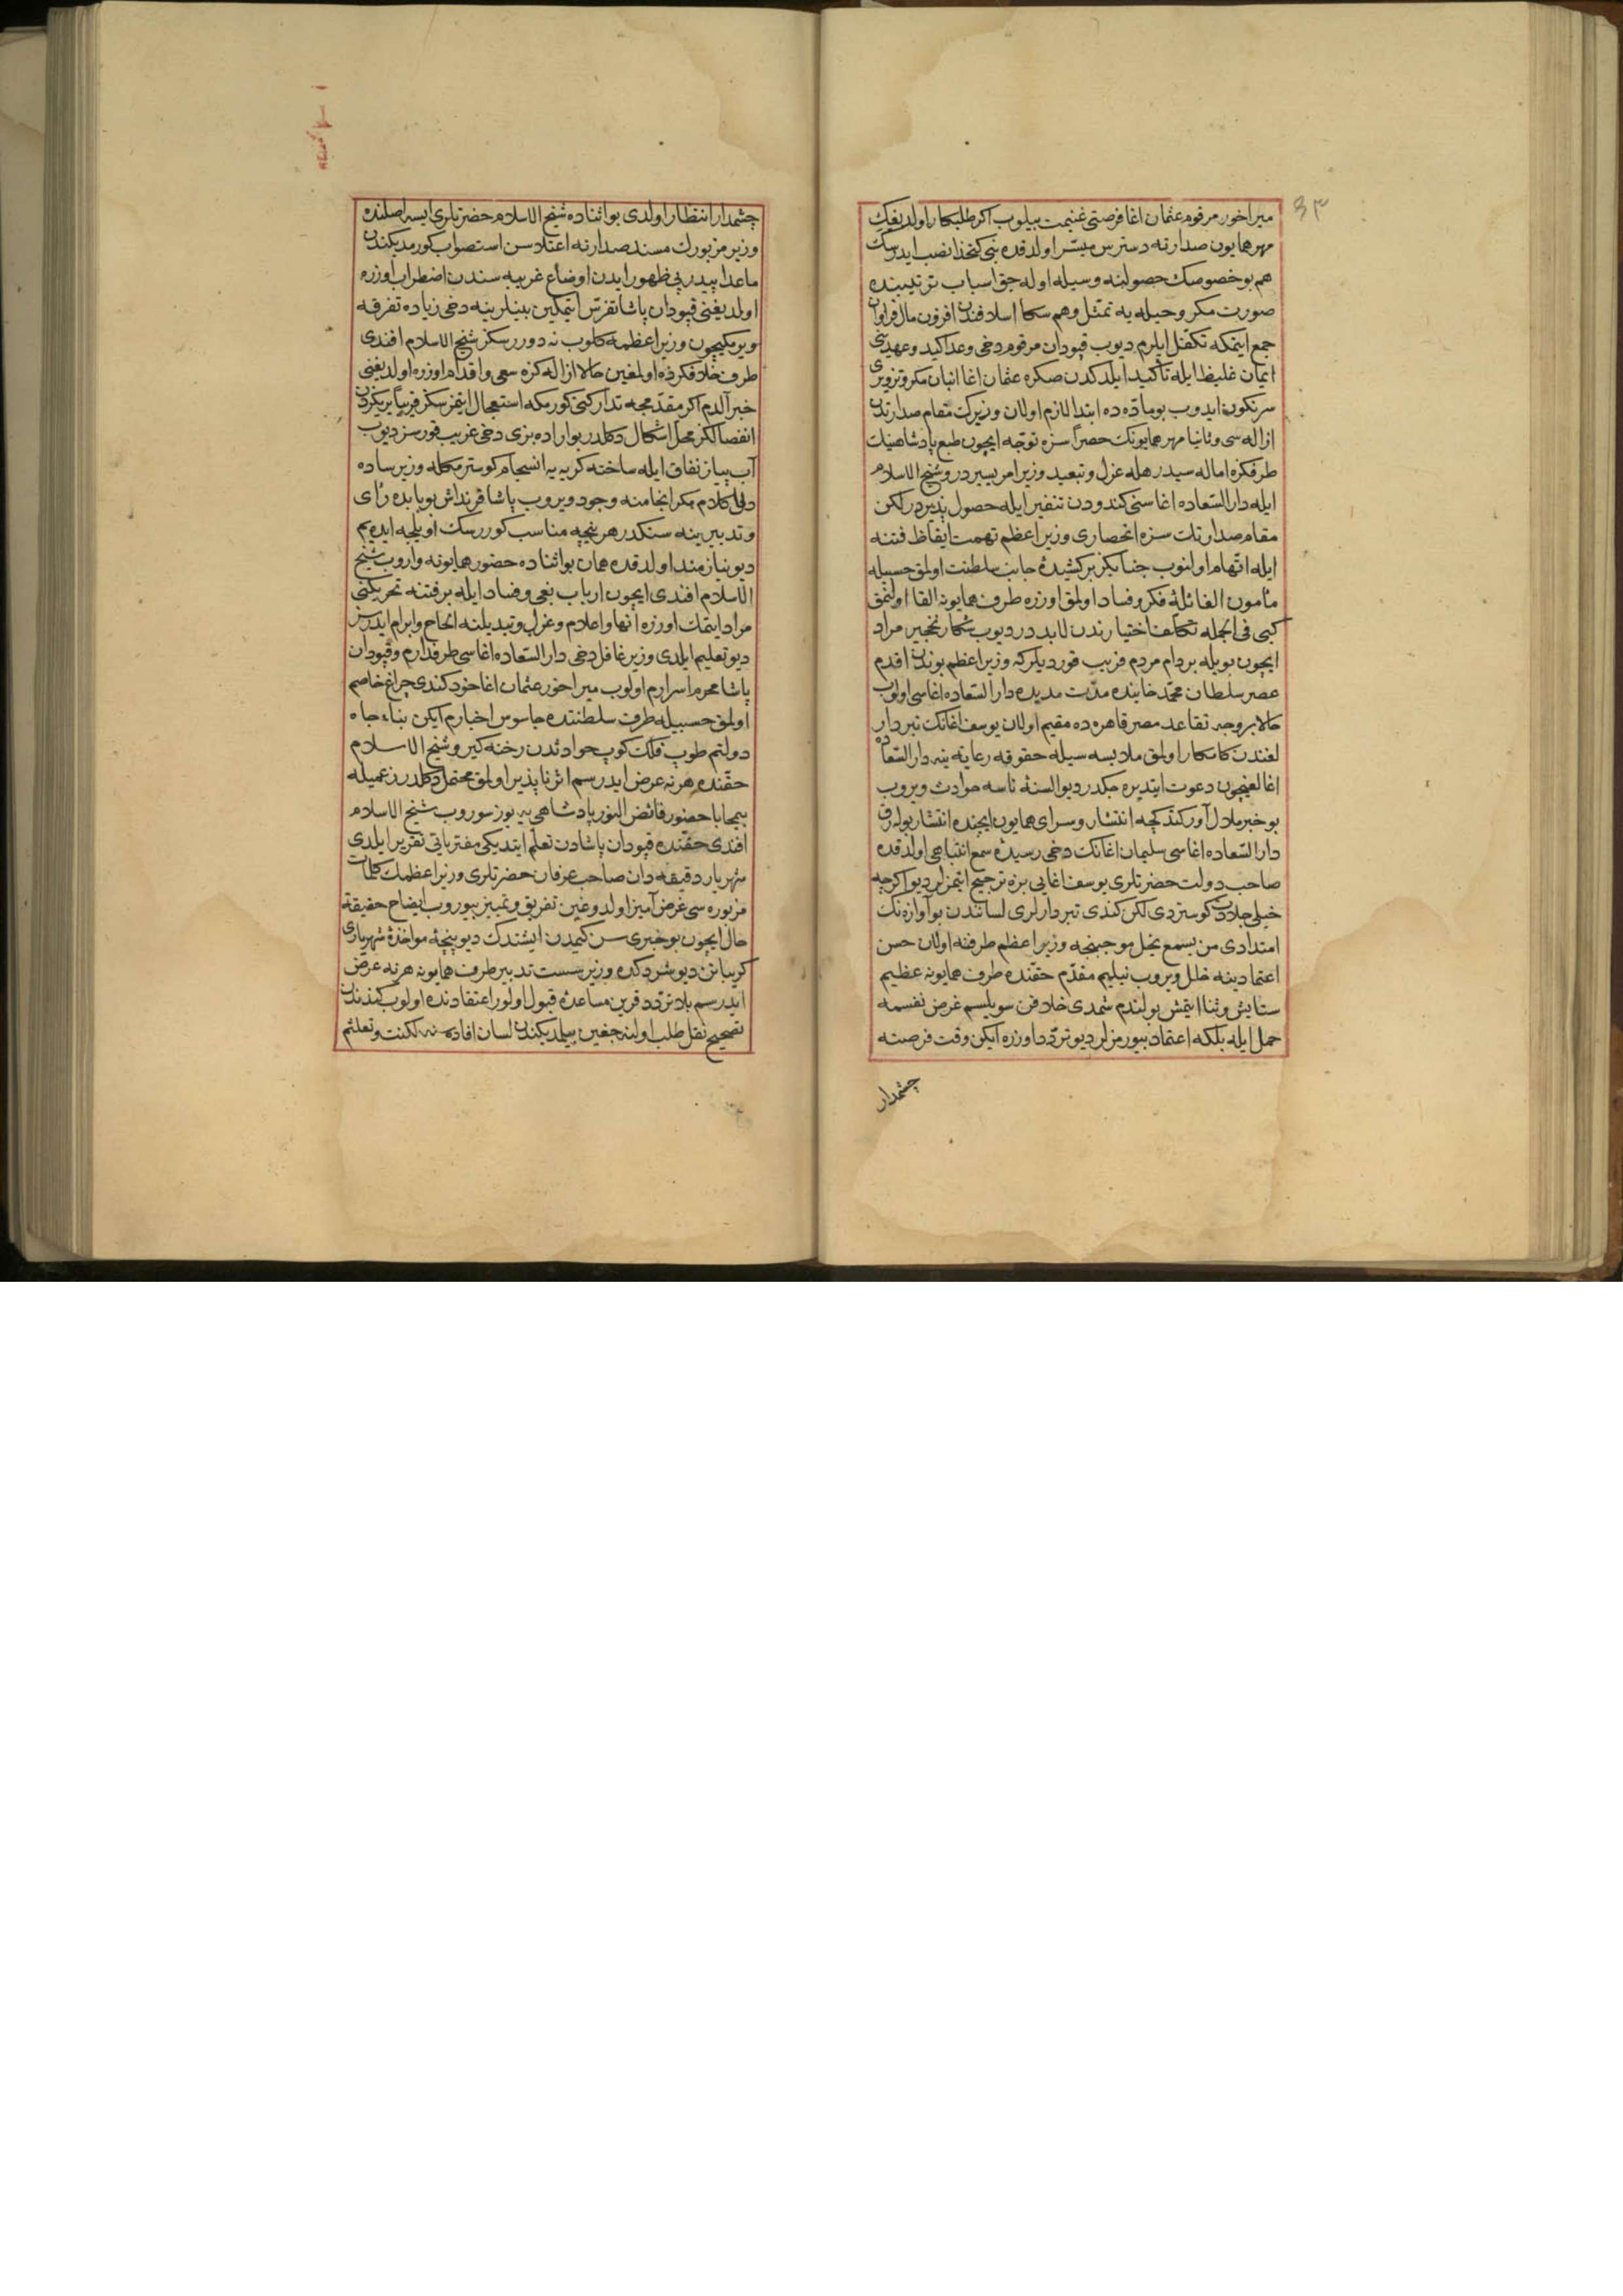 ٣٣
میراخور مرقوم عثمان اغا فرصتی غنیمت بیلوب اکر طلبکار اولدیغک
مهر همایون صدارته دسترس میسّر اولدقده بنی کتخدا نصب ایدرسك
هم بو خصوصك حصولنه وسیله اوله جق اسباب ترتیبنده
صورت مکر و حیله یه تمثل و هم سکا اسلافندن افزون مال فراوان
جمع ایتمکه تکفّل ایلرم دیوب قپودان مرقوم دخی وعد اکید و عهدینی
ایمان غلیظ ایله تأکید ایلدکدن صکره عثمان اغا انبان مکر و تزویری
سرنکون ایدوب بو مادّه ده ابتدا لازم اولان وزیرك مقام صدارتدن
ازاله سی و ثانیا مهر همایونك حصراً سزه توجّه ایچون طبع پادشاهینك
طرفکزه اماله سیدر هله عزل و تبعید وزیر امر یسیردر و شیخ الاسلام
ایله دار السّعاده اغاسنی کندودن تنفیر ایله حصول پذیردر لکن
مقام صدارتك سزه انحصاری وزیر اعظم تهمت ایقاظ فتنه
ایله اتّهام اولنوب جنابکز برکشیدهٔ جانب سلطنت اولمق حسبیله
مأمون الغائلهٔ فکر و فساد اولمق اوزره طرف همایونه القا اولنمق
کبی فی الجمله تکلّف اختیارندن لابددر دیوب شکار نخجیر مراد
ایچون بویله بر دام مردم فریب قوردیلر که وزیر اعظم بوندن اقدم
عصر سلطان محمّد خانیده مدّت مدیده دار السّعاده اغاسی اولوب
حالا بر وجه تقاعد مصر قاهره ده مقیم اولان یوسف اغانك تبردار
لغندن کامکار اولمق ملابسه سیله حقوقه رعایة ینه دار السّعاده
اغالغیچون دعوت ایتدیره جکدر دیو السنهٔ ناسه حوادث ویروب
بو خبر ملال آور کندکچه انتشار و سرای همایون ایچنده انتشار بولرق
دار السّعاده اغاسی سلیمان اغانك دخی رسیدهٔ سمع انتباهی اولدقده
صاحب دولت حضرتلری یوسف اغایی بزه ترجیح ایتمزلر دیو اکرچه
خیلی جلادت کوستردی لکن کندی تبردارلری لسانندن بو آوازه نك
امتدادی من یسمع یخل موجبنجه وزیر اعظم طرفنه اولان حسن
اعتمادینه خلل ویروب نیلیم مقدّم حقّنده طرف همایونه عظیم
ستایش و ثنا ایتمش بولندم شمدی خلافن سویلسم غرض نفسمه
حمل ایله بلکه اعتماد بیورمزلر دیو تردّد اوزره ایکن وقت فرصته
چشمدار
چشمدار انتظار اولدی بو اثناده شیخ الاسلام حضرتلری ایسه اصلنده
وزیر مزبورك مسند صدارته اعتلاسن استصواب کورمدیکندن
ماعدا پیدرپی ظهور ایدن اوضاع غریبه سندن اضطراب اوزره
اولدیغنی قپودان پاشا تفرّس ایتمکین بینلرینه دخی زیاده تفرقه
ویرمکیچون وزیر اعظمه کلوب نه دوررسکز شیخ الاسلام افندی
طرف خلافکزده اولمغین حالا ازاله کزه سعی و اقدام اوزره اولدیغنی
خبر آلدم اکر مقدّمجه تدارکنی کورمکه استعجال ایتمزسکز قریباً بریکزدن
انفصالکز محلّ اشکال دکلدر بو اراده بزی دخی غریب قورسز دیوب
آب پیاز نفاق ایله ساخته کریه یه انسجام کوسترمکله وزیر ساده
دل کلام مکر انجامنه وجود ویروب پاشا قرنداش بو بابده رأی
و تدبیر ینه سنکدر هر نیجه مناسب کوررسك اویلجه ایده یم
دیو نیازمند اولدقده همان بو اثناده حضور همایونه واروب شیخ
الاسلام افندی ایچون ارباب بغی و فساد ایله بر فتنه تحریکنی
مراد ایتمك اوزره انها و اعلام و عزل و تبدیلنه الحاح و ابرام ایدرسز
دیو تعلیم ایلدی وزیر غافل دخی دار السّعاده اغاسی طرفدارم و قپودان
پاشا محرم اسرارم اولوب میراخور عثمان اغا خود کندی چراغ خاصم
اولمق حسبیله طرف سلطنتده جاسوس اخبارم ایکن بناء جاه
دولتم طوپ فلك کوب حوادثدن رخنه کیر و شیخ الاسلام
حقّنده هر نه عرض ایدرسم اثر ناپذیر اولمق محتمل دکلدر زعمیله
بیمحابا حضور فائض النّور پادشاهی یه یوز سوروب شیخ الاسلام
افندی حقّنده قپودان پاشادن تعلّم ایتدیکی مفتریاتی تقریر ایلدی
شهریار دقیقه دان صاحب عرفان حضرتلری وزیر اعظمك کلمات
مزبوره سی غرض آمیز اولدوغین تفریق و تمییز بیوروب ایضاح حقیقة
حال ایچون بو خبری سن کیمدن ایشتدك دیو پنجهٔ مواخذهٔ شهریاری
کریبانن دیوشردکده وزیر سست تدبیر طرف همایونه هر نه عرض
ایدرسم بلا تردّد قرین مساعدهٔ قبول اولور اعتقادنده اولوب کندندن
تصحیح نقل طلب اولنه جغین بیلمدیکندن لسان افاده سنه لکنت و تعلثم